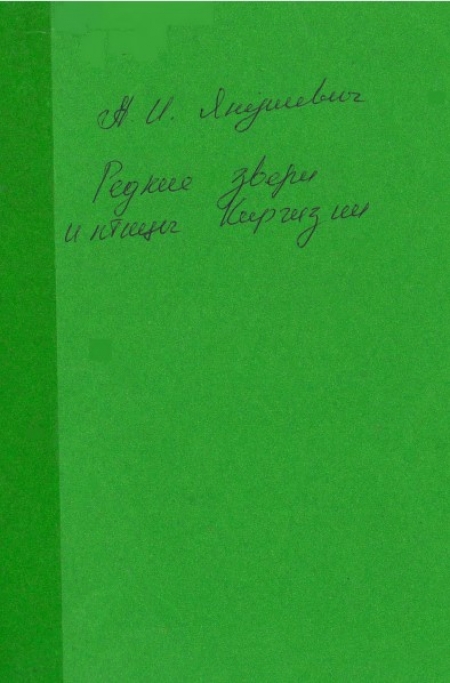 А. И. Янушевич
Редкие звери
и птицы Киргизии